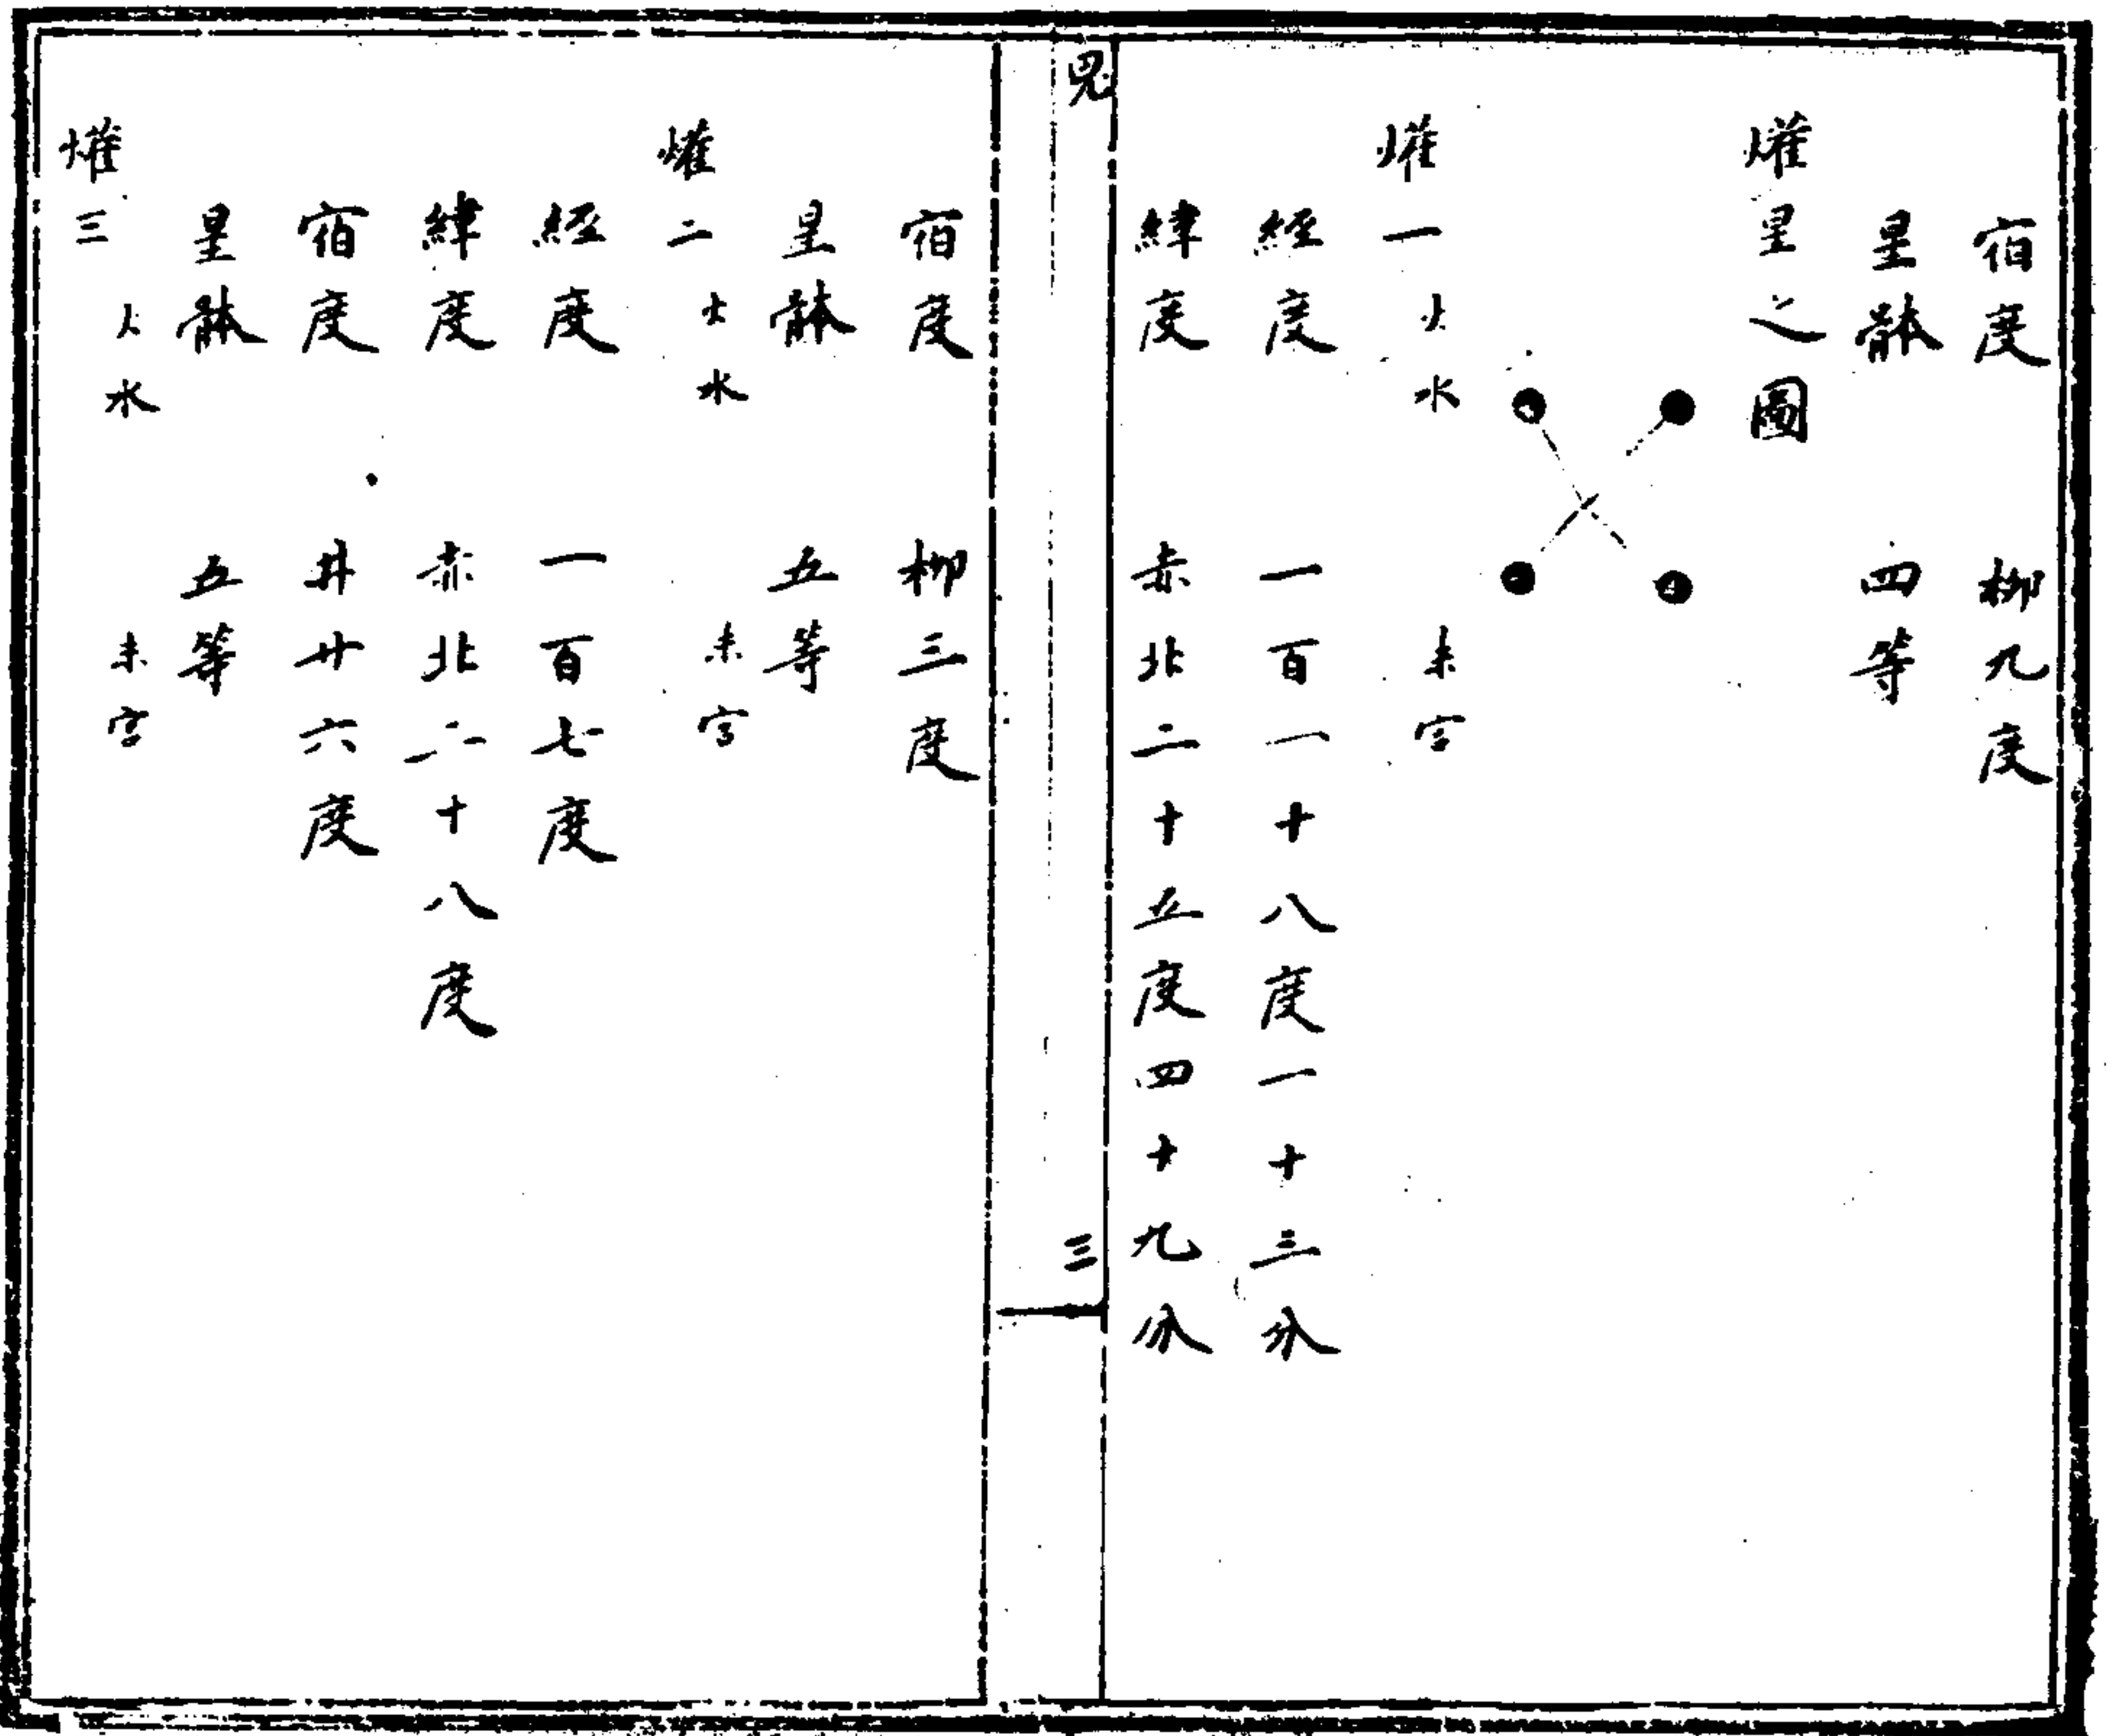 宿度　柳九度
星體　四等
爟星之圖
爟一　火水　未宮
經度　一百一十八度一十三分
緯度　赤北二十五度四十九分
鬼　三
宿度　柳三度
星體　五等
爟二　土水　未宮
經度　一百七度
緯度　赤北二十八度
宿度　井廿六度
星體　五等
爟三　火水　未宮